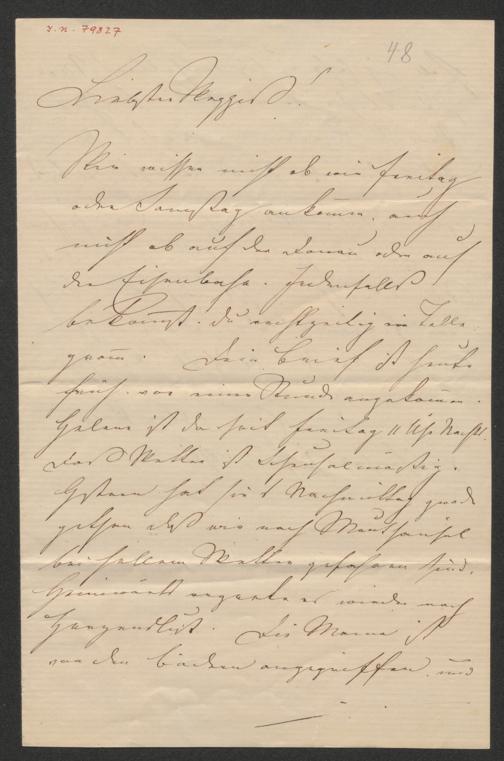 I.N. 79827
48
Liebster
Wir wissen nicht ob wir Freitag
oder Samstag ankommen, auch
nicht ob auf der Donau oder auf
der Eisenbahn. Jedenfalls
bekommst du rechtzeitig ein Tele
gramm. Dein Brief ist heute
früh vor einer Stunde angekommen.
Helene ist da seit Freitag 11 Uhr Nachts.
Das Wetter ist scheusalmässig.
Gestern hat sie's Nachmittag
gethan daß wir nach
bei hellem Wetter gefahren sind.
Heimwärts regnete es wieder nach
Herzenslust. Die Mama ist
von den Bädern angegriffen und